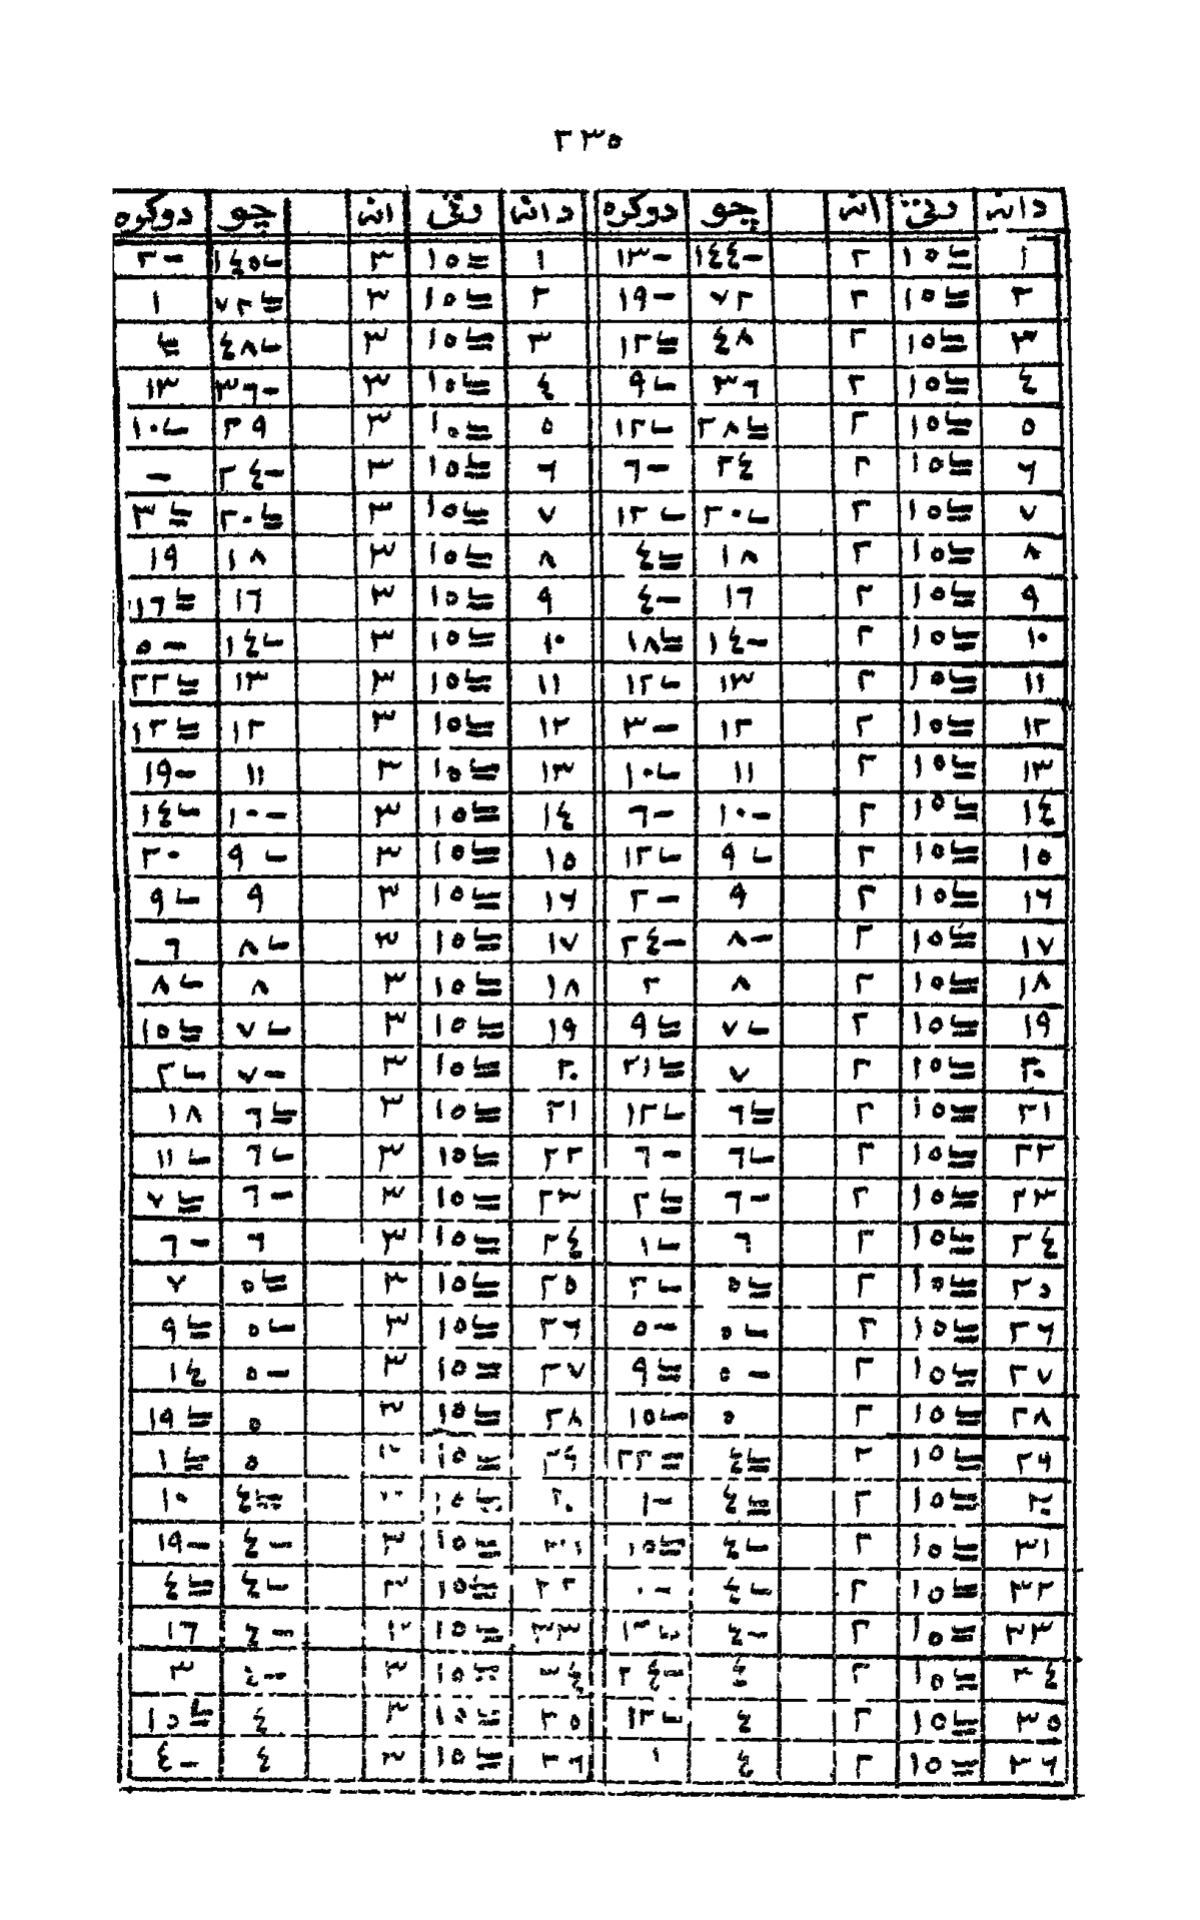 ٢٣٥
دانه رتي انه چو دوكره دانه رتي انه چو دوكره
١ ١٥ ٢ -١٤٤ -١٣ ١ ١٥ ٣ ١٤٥ -٢
٢ ١٥ ٢ ٧٢ -١٩ ٢ ١٥ ٣ ٧٢ ١
٣ ١٥ ٢ ٤٨ ١٢ ٣ ١٥ ٣ ٤٨
٤ ١٥ ٢ ٣٦ ٩ ٤ ١٥ ٣ -٣٦ ١٣
٥ ١٥ ٢ ٢٨ ١٢ ٥ ١٥ ٣ ٢٩ ١٠
٦ ١٥ ٢ ٢٤ -٦ ٦ ١٥ ٣ -٢٤ -
٧ ١٥ ٢ ٢٠ ١٢ ٧ ١٥ ٣ ٢٠ ٣
٨ ١٥ ٢ ١٨ ٤ ٨ ١٥ ٣ ١٨ ١٩
٩ ١٥ ٢ ١٦ -٤ ٩ ١٥ ٣ ١٦ ١٦
١٠ ١٥ ٢ -١٤ ١٨ ١٠ ١٥ ٣ ١٤ -٥
١١ ١٥ ٢ ١٣ ١٢ ١١ ١٥ ٣ ١٣ ٢٢
١٢ ١٥ ٢ ١٢ -٣ ١٢ ١٥ ٣ ١٢ ١٢
١٣ ١٥ ٢ ١١ ١٠ ١٣ ١٥ ٣ ١١ -١٩
١٤ ١٥ ٢ -١٠ -٦ ١٤ ١٥ ٣ -١٠ ١٤
١٥ ١٥ ٢ ٩ ١٢ ١٥ ١٥ ٣ ٩ ٢٠
١٦ ١٥ ٢ ٩ -٢ ١٦ ١٥ ٣ ٩ ٩
١٧ ١٥ ٢ -٨ -٢٤ ١٧ ١٥ ٣ ٨ ٦
١٨ ١٥ ٢ ٨ ٢ ١٨ ١٥ ٣ ٨ ٨
١٩ ١٥ ٢ ٧ ٩ ١٩ ١٥ ٣ ٧ ١٥
٢٠ ١٥ ٢ ٧ ٢١ ٢٠ ١٥ ٣ -٧ ٢
٢١ ١٥ ٢ ٦ ١٢ ٢١ ١٥ ٣ ٦ ١٨
٢٢ ١٥ ٢ ٦ -٦ ٢٢ ١٥ ٣ ٦ ١١
٢٣ ١٥ ٢ -٦ ٢ ٢٣ ١٥ ٣ -٦ ٧
٢٤ ١٥ ٢ ٦ ١ ٢٤ ١٥ ٣ ٦ -٦
٢٥ ١٥ ٢ ٥ ٢ ٢٥ ١٥ ٣ ٥ ٧
٢٦ ١٥ ٢ ٥ -٥ ٢٦ ١٥ ٣ ٥ ٩
٢٧ ١٥ ٢ -٥ ٩ ٢٧ ١٥ ٣ -٥ ١٤
٢٨ ١٥ ٢ ٥ ١٥ ٢٨ ١٥ ٣ ٥ ١٩
٢٩ ١٥ ٢ ٤ ٢٢ ٢٩ ١٥ ٥ ١
٣٠ ١٥ ٢ ٤ -١ ١٥ ٤ ١٠
٣١ ١٥ ٢ ٤ ١٥ ١٥ ٣ -٤ -١٩
٣٢ ١٥ ٢ ٤ ١٥ ٣ ٤ ٤
٣٣ ١٥ ٢ -٤ ٣٣ ١٥ -٤ ١٦
٣٤ ١٥ ٢ ٤ -٢٤ ٣٤ ١٥ ٣ -٤ ٣
٣٥ ١٥ ٢ ٤ ١٢ ٣٥ ١٥ ٣ ٤ ١٥
٣٦ ١٥ ٢ ٤ ١ ٣٦ ١٥ ٣ ٤ -٤